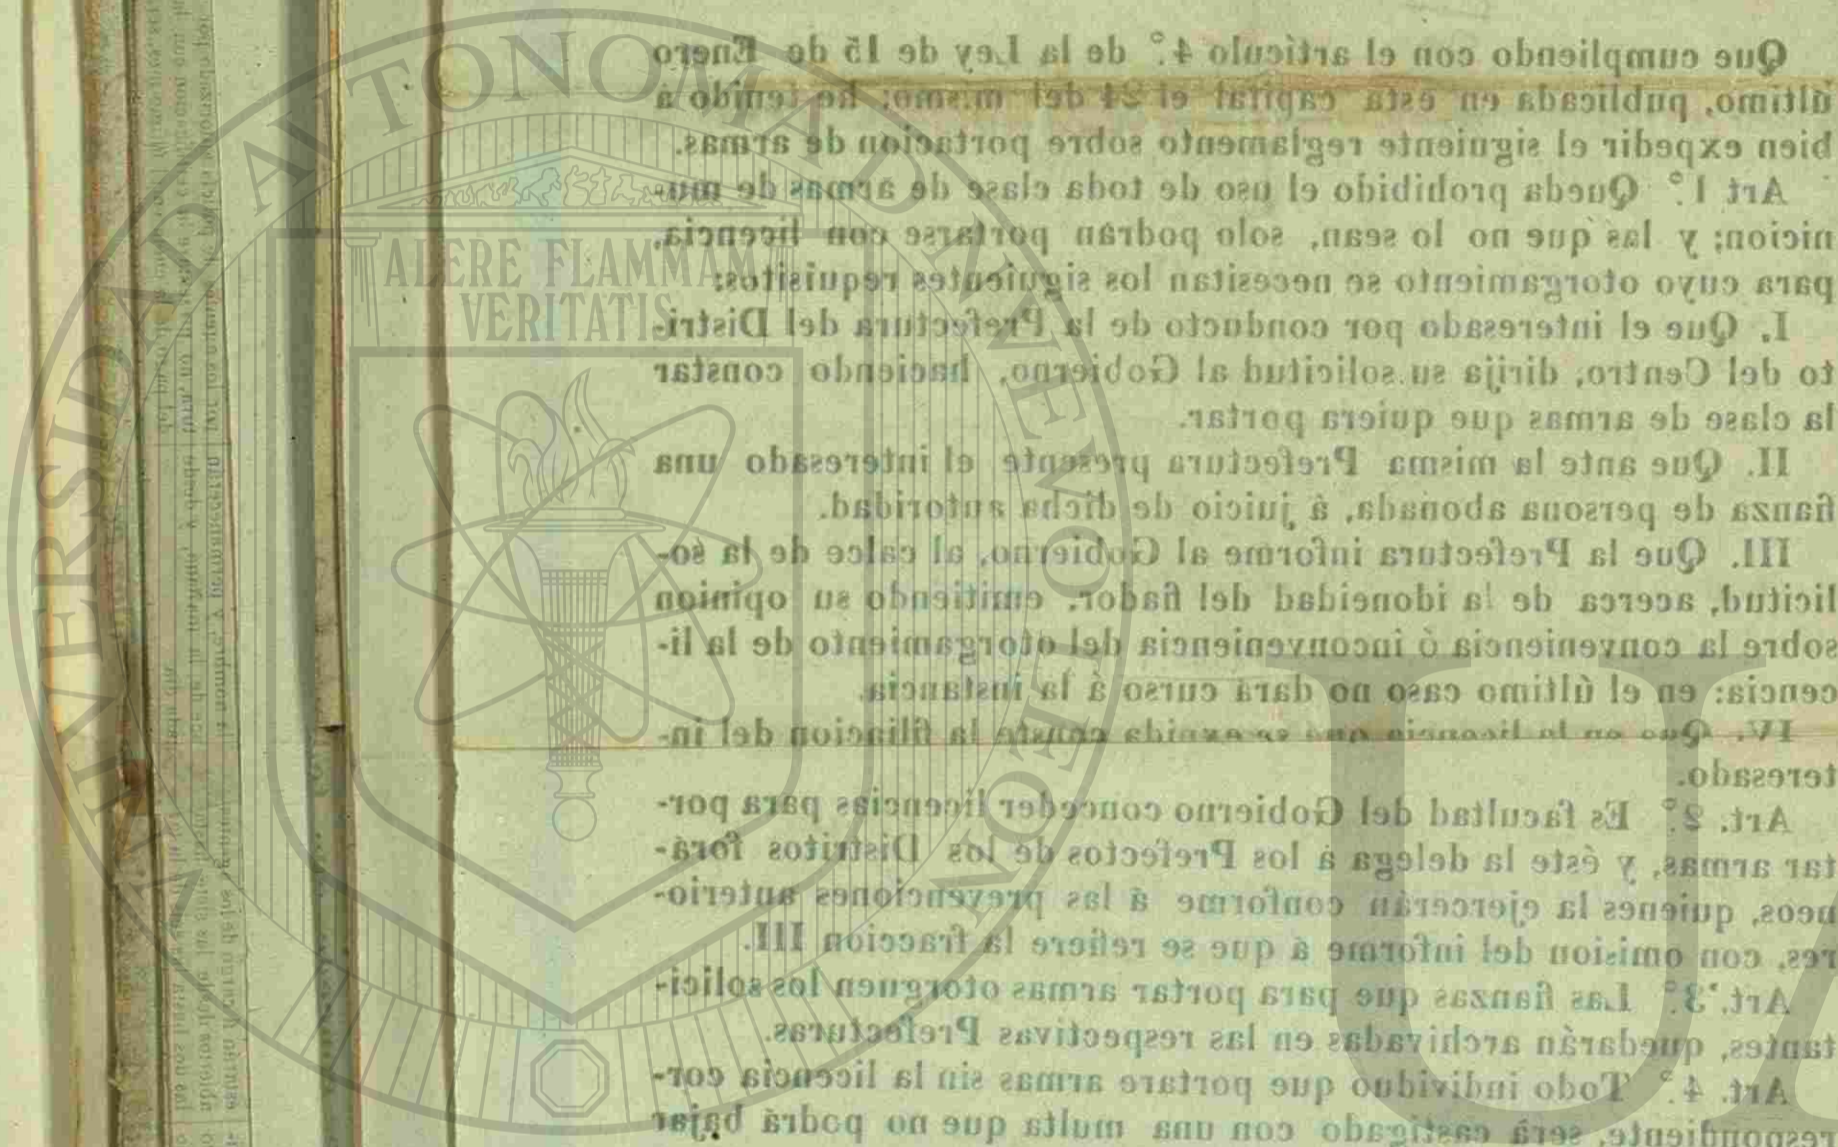 Que cumpliendo con el artículo 4.° de la Ley de 15 de Enero
último, publicada en esta capital el 24 del mismo; he tenido á
bien expedir el siguiente reglamento sobre portacion de armas.
Art 1.° Queda prohibido el uso de toda clase de armas de mu-
nicion; y las que no lo sean, solo podrán portarse con licencia,
para cuyo otorgamiento se necesitan los siguientes requisitos:
I. Que el interesado por conducto de la Prefectura del Distri-
to del Centro, dirija su solicitud al Gobierno, haciendo constar
la clase de armas que quiera portar.
II. Que ante la misma Prefectura presente el interesado una
fianza de persona abonada, á juicio de dicha autoridad.
III. Que la Prefectura informe al Gobierno, al calce de la so-
licitud, acerca de la idoneidad del fiador, emitiendo su opinion
sobre la conveniencia ó inconveniencia del otorgamiento de la li-
cencia: en el último caso no dará curso á la instancia.
IV. Que en la licencia que se expida conste la filiacion del in-
teresado.
Art. 2.° Es facultad del Gobierno conceder licencias para por-
tar armas, y éste la delega á los Prefectos de los Distritos forá-
neos, quienes la ejercerán conforme á las prevenciones anterio-
res, con omision del informe á que se refiere la fraccion III.
Art. 3.° Las fianzas que para portar armas otorguen los solici-
tantes, quedarán archivadas en las respectivas Prefecturas.
Art. 4.° Todo individuo que portare armas sin la licencia cor-
respondiente, será castigado con una multa que no podrá bajar
UNIVERSIDAD AUTONOMA DE NUEVO LEON
ALERE FLAMMAM
VERITATIS
UA